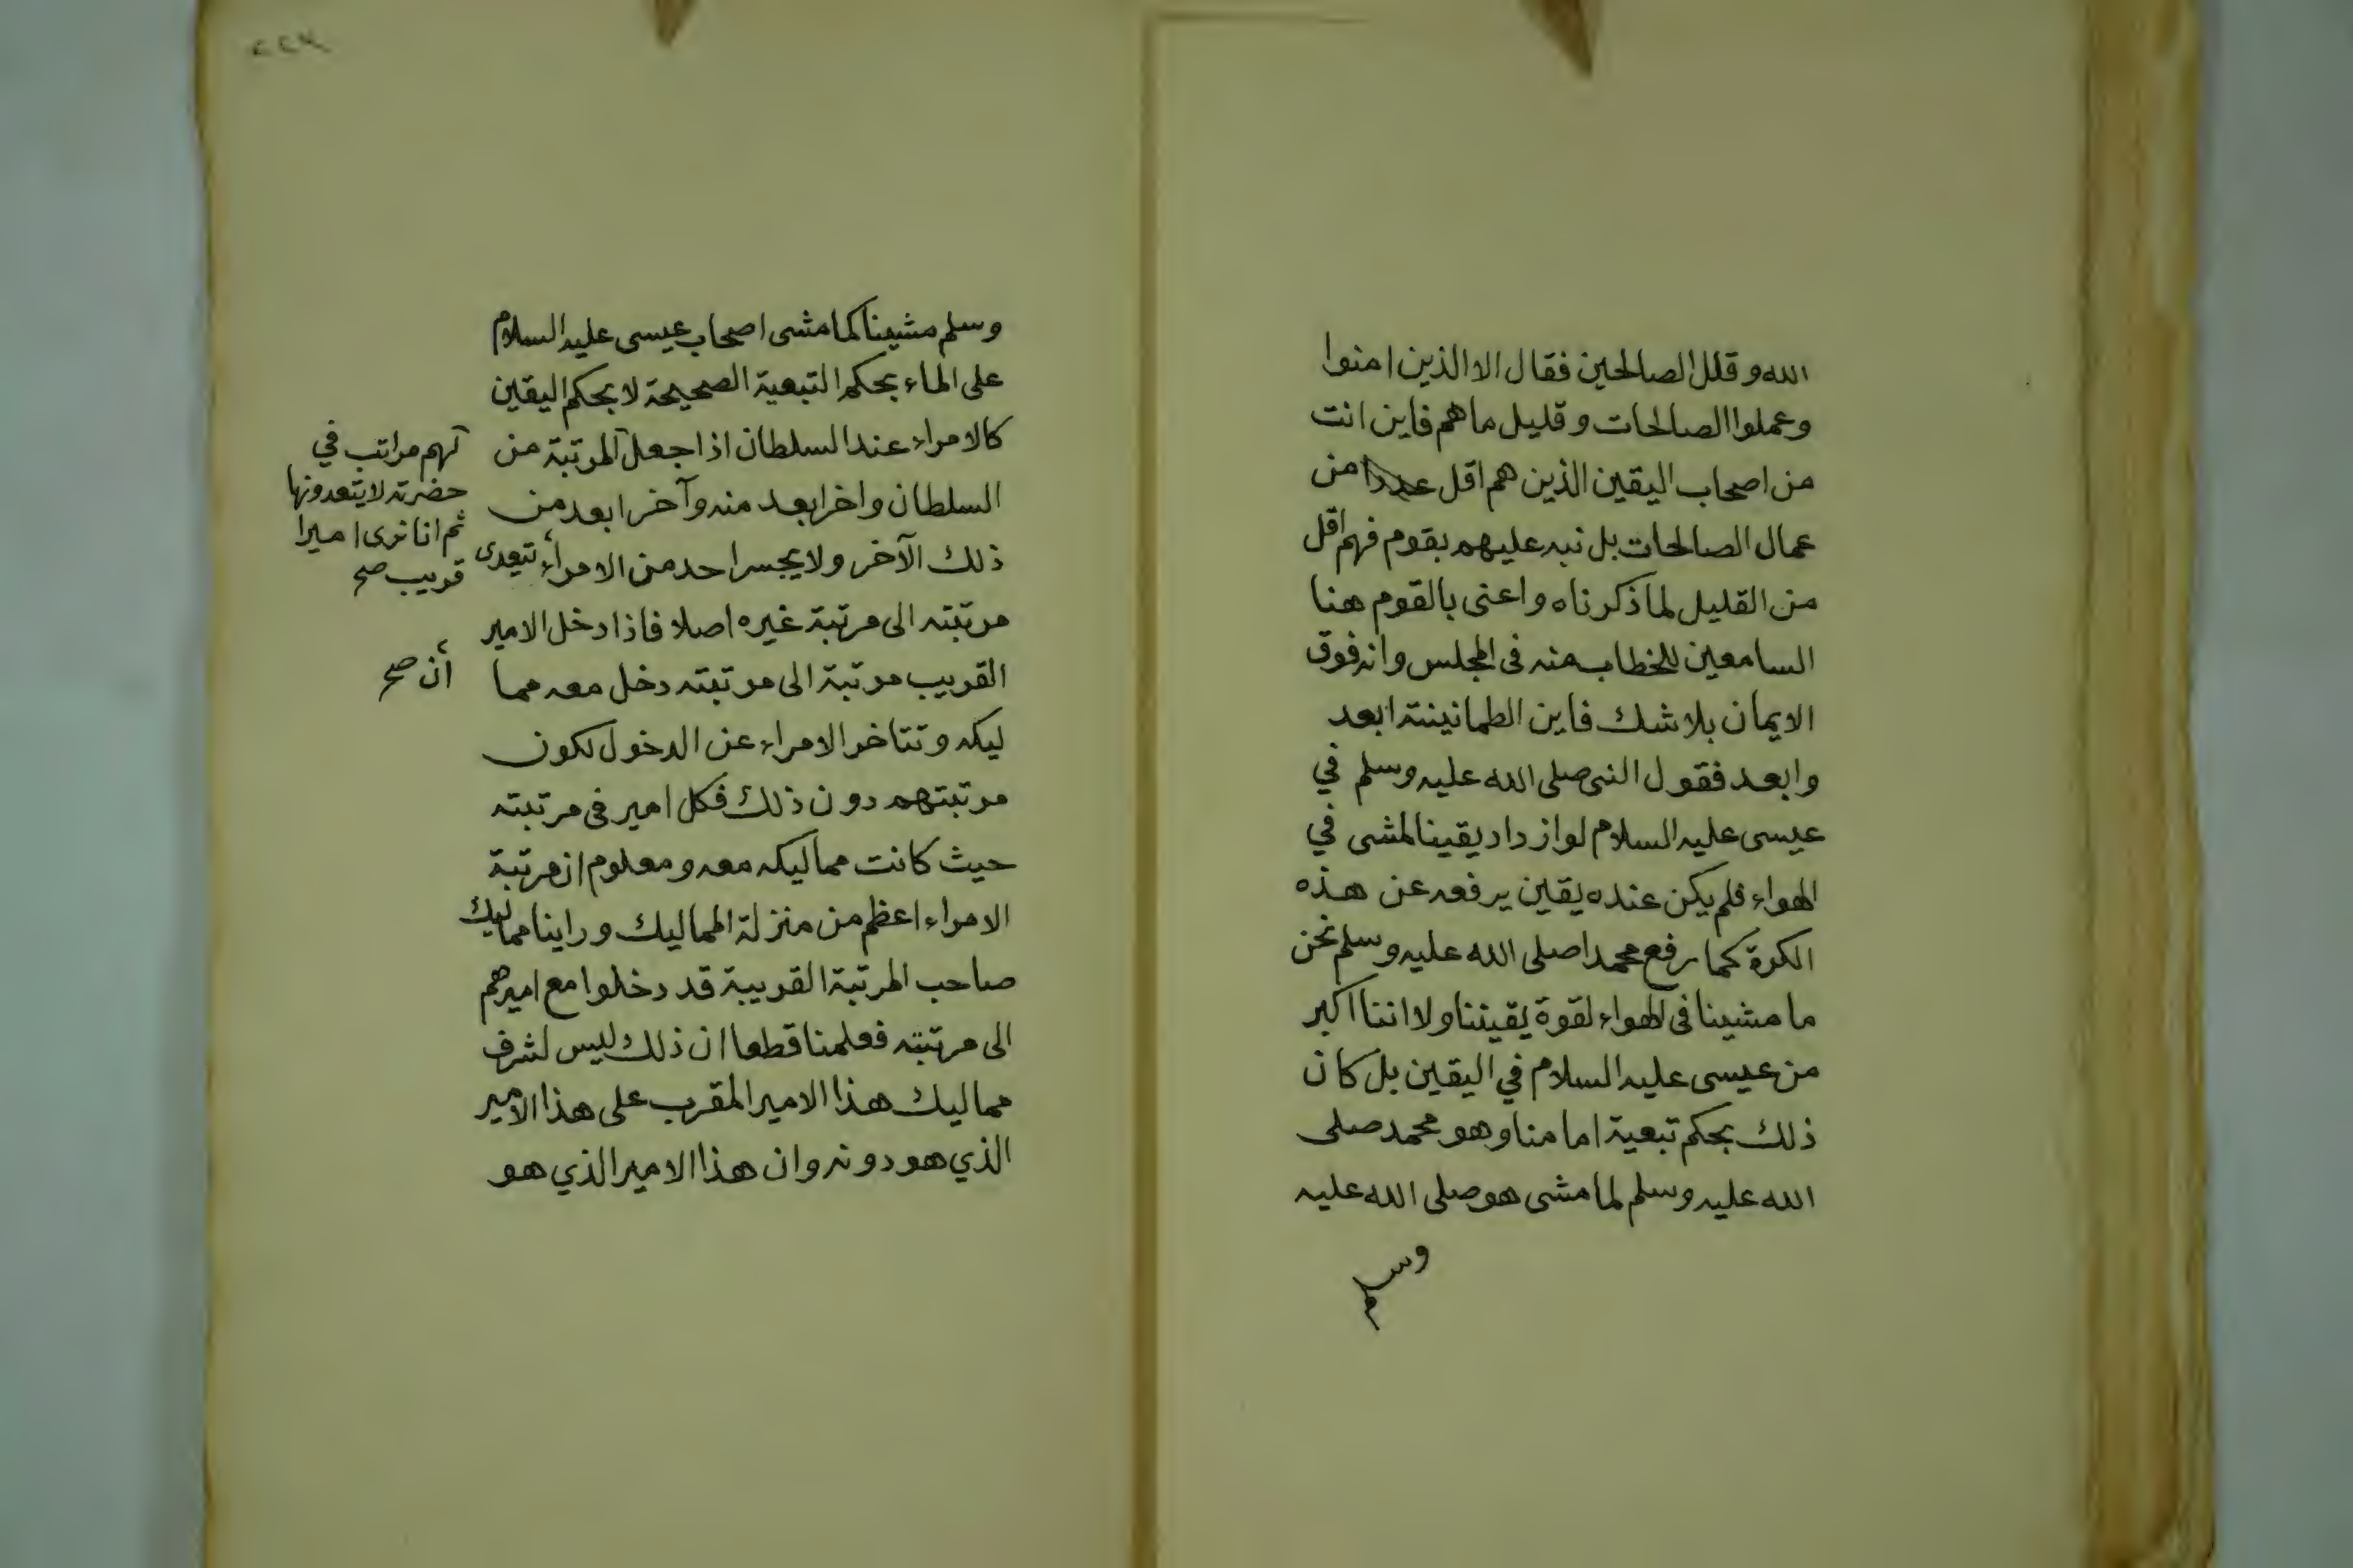 الله وقلل الصالحين فقال الا الذين امنوا
وعملوا الصالحات وقليل ما هم فاين انت
من اصحاب اليقين الذين هم اقل عددا من
عمال الصالحات بل نبه عليهم بقوم فهم اقل
من القليل لما ذكرناه واعنى بالقوم هنا
السامعين للخطاب منه فى المجلس وانه فوق
الايمان بلا شك فاين الطمانينة ابعد
وابعد فقول النبى صلى الله عليه وسلم في
عيسى عليه السلام لو ازداد يقينا لمشى في
الهواء فلم يكن عنده يقين يرفعه عن هذه
الكرة كما رفع محمدا صلى الله عليه وسلم نحن
ما مشينا فى الهواء لقوة يقيننا ولا اننا اكبر
من عيسى عليه السلام في اليقين بل كان
ذلك بحكم تبعية امامنا وهو محمد صلى
الله عليه وسلم لما مشى هو صلى الله عليه
وسلم
٢٢٧
وسلم مشينا كما مشى اصحاب عيسى عليه السلام
على الماء بحكم التبعية الصحيحة لا بحكم اليقين
كالامراء عند السلطان اذا جعل المرتبة من
السلطان واخر ابعد منه وآخر ابعد من
ذلك الآخر ولا يجسر احد من الامراء يتعدى
مرتبته الى مرتبة غيره اصلا فاذا دخل الامير
القريب مرتبة الى مرتبته دخل معه مما
ليكه وتتاخر الامراء عن الدخول لكون
مرتبتهم دون ذلك فكل امير فى مرتبته
حيث كانت مماليكه معه ومعلوم ان مرتبة
الامراء اعظم من منزلة المماليك وراينا مماليك
صاحب المرتبة القريبة قد دخلوا مع اميرهم
الى مرتبته فعلمنا قطعا ان ذلك ليس لشرف
مماليك هذا الامير المقرب على هذا الامير
الذي هو دونه وان هذا الامير الذي هو
لهم مراتب في
حضرته لا يتعدونها
ثم انا نرى اميرا
قريب صح
أن صح